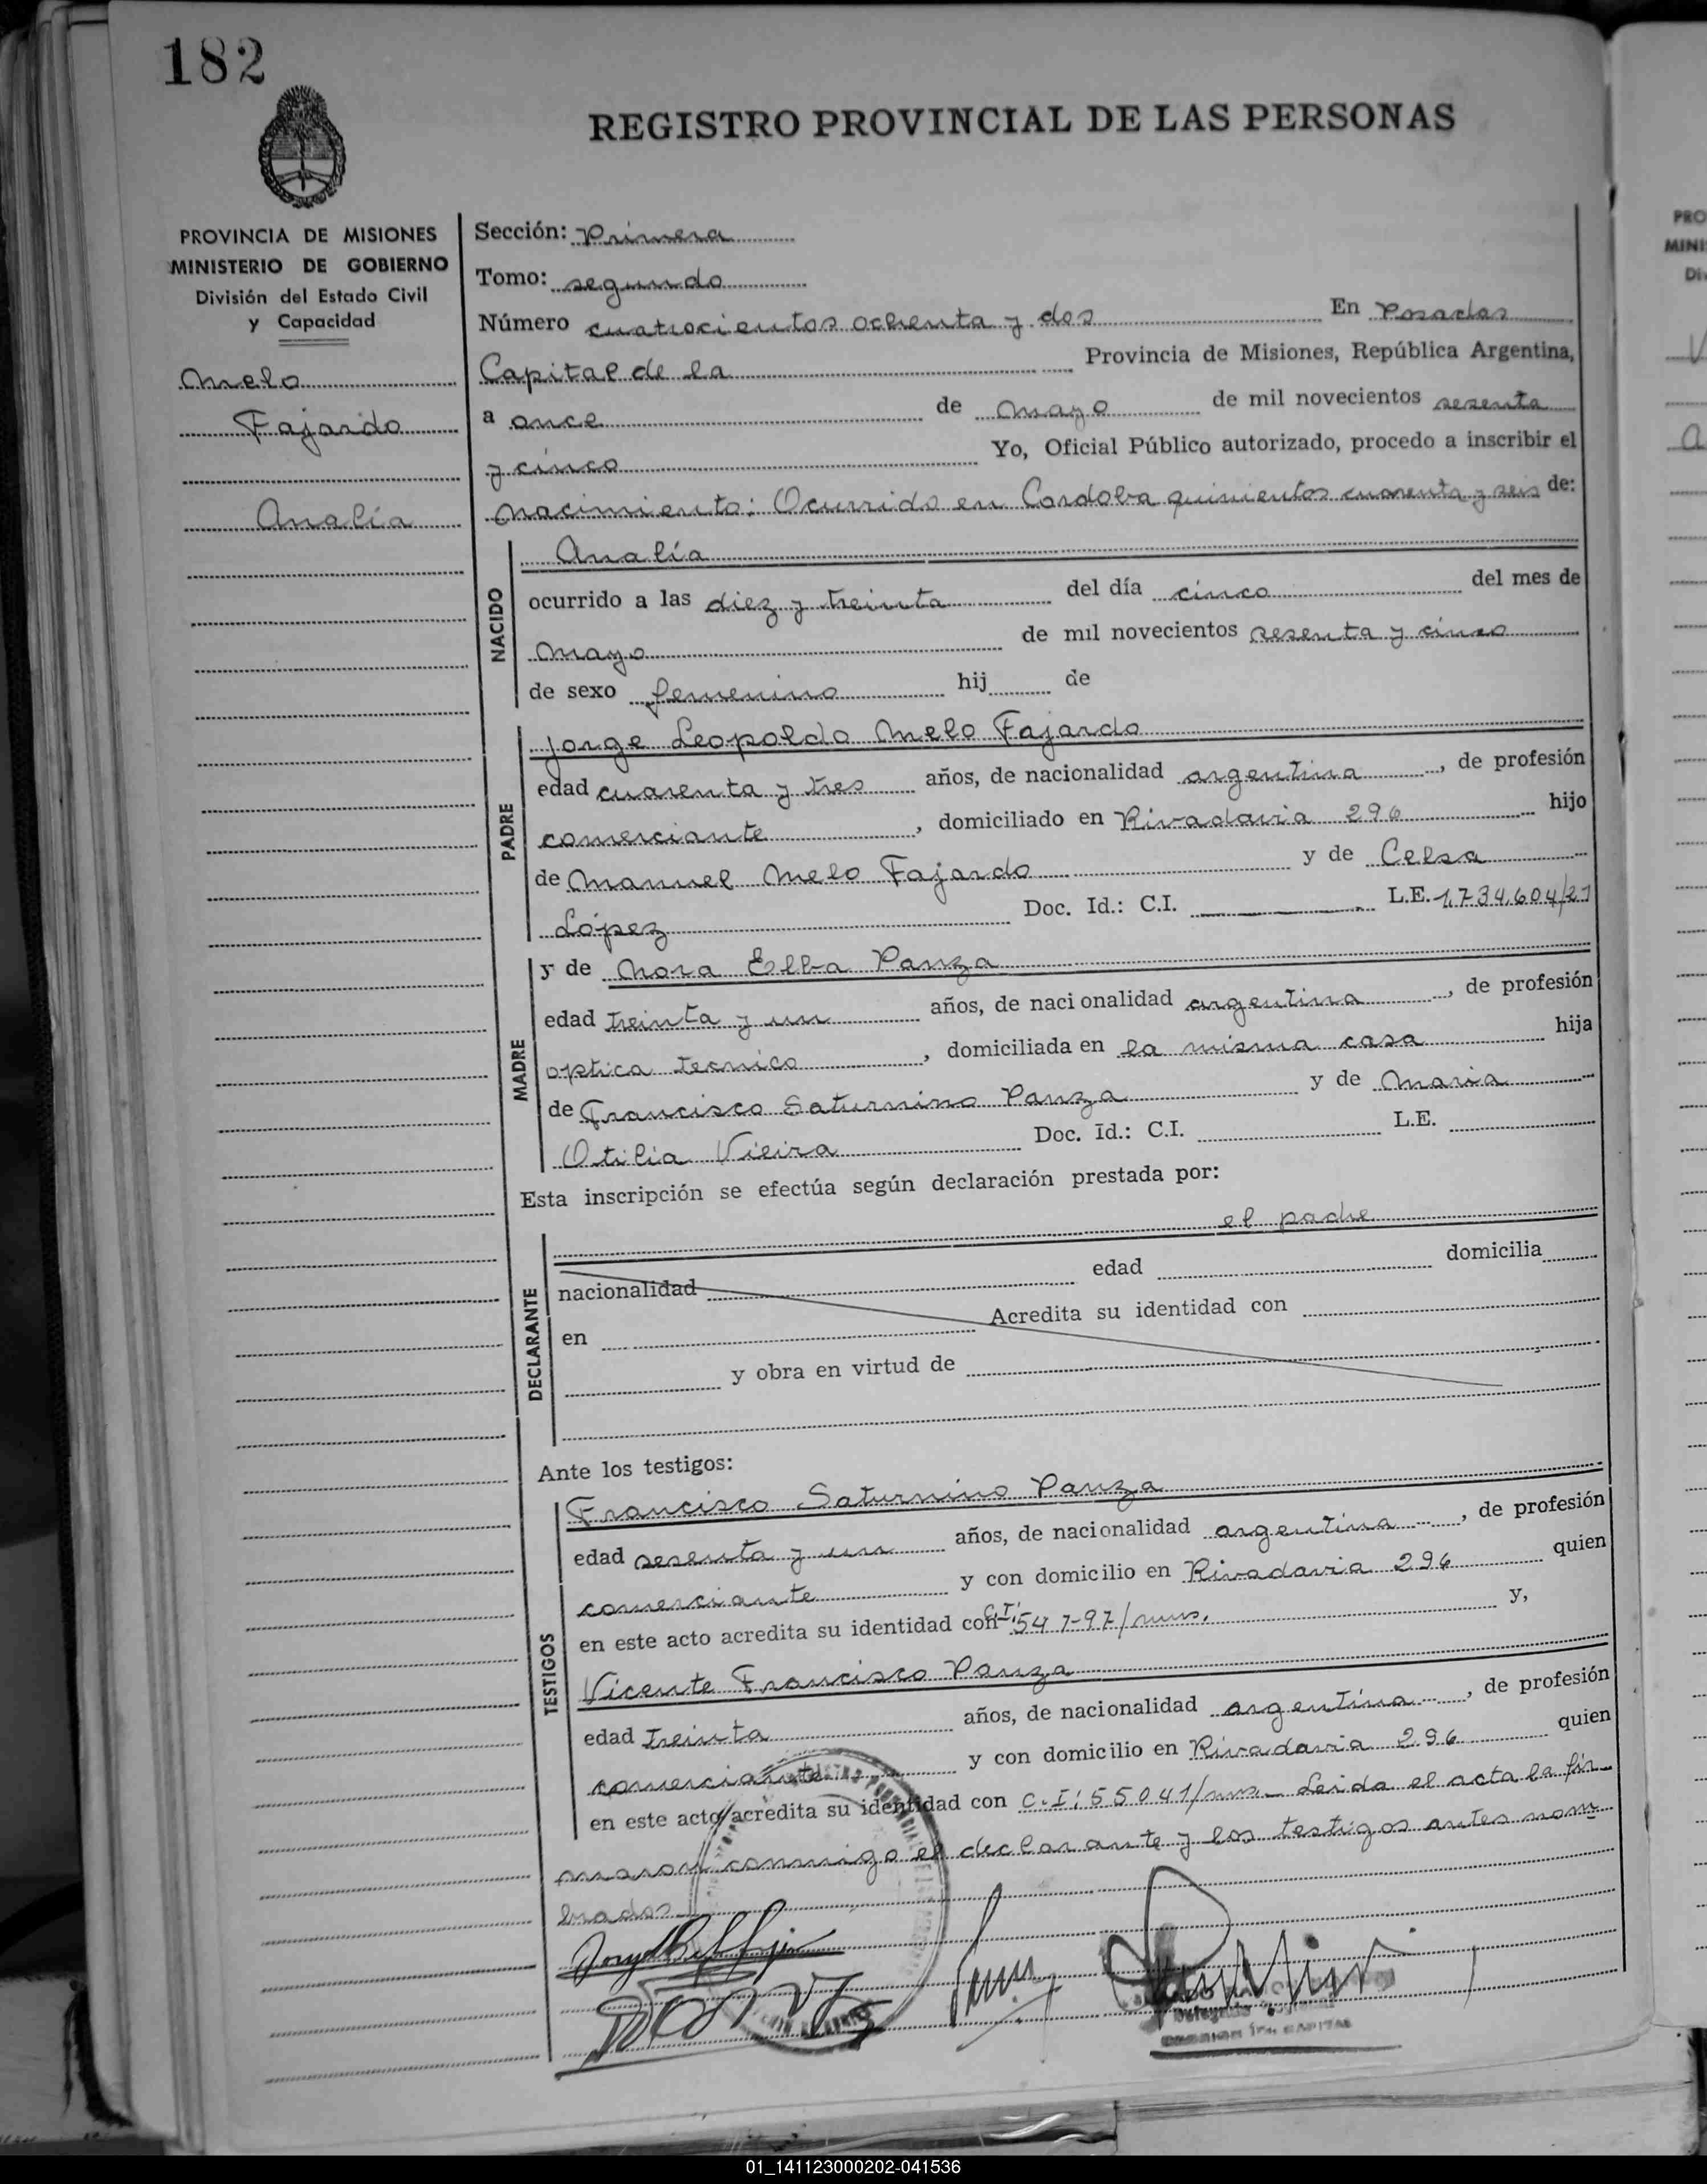 182
REGISTRO PROVINCIAL DE LAS PERSONAS
PROVINCIA DE MISIONES
MINISTERIO DE GOBIERNO
División del Estado Civil
y Capacidad
Melo
Fajardo
Analía
Sección: Primera
Tomo: segundo
Número cuatrocientos ochenta y dos En Posadas
Capital de la Provincia de Misiones, República Argentina,
a once de mayo de mil novecientos sesenta
y cinco Yo, Oficial Público autorizado, procedo a inscribir el
nacimiento: Ocurrido en Cordoba quinientos cuarenta y seis de:
NACIDO
Analía
ocurrido a las diez y treinta del día cinco del mes de
mayo de mil novecientos sesenta y cinco
de sexo femenino hij de
PADRE
Jorge Leopoldo Melo Fajardo
edad cuarenta y tres años, de nacionalidad argentina, de profesión
comerciante, domiciliado en Rivadavia 296 hijo
de Manuel Melo Fajardo y de Celsa
López Doc. Id.: C.I. L.E. 1,734,604/21
MADRE
y de Nora Elba Panza
edad treinta y un años, de nacionalidad argentina, de profesión
optica tecnico, domiciliada en la misma casa hija
de Francisco Saturnino Panza y de Maria
Otilia Vieira Doc. Id.: C.I. L.E.
Esta inscripción se efectúa según declaración prestada por:
el padre
DECLARANTE
nacionalidad edad domicilia
en Acredita su identidad con
y obra en virtud de
Ante los testigos:
TESTIGOS
Francisco Saturnino Panza
edad sesenta y un años, de nacionalidad argentina, de profesión
comerciante y con domicilio en Rivadavia 296 quien
en este acto acredita su identidad con C.I: y,
Vicente Francisco Panza
edad treinta años, de nacionalidad argentina, de profesión
comerciante y con domicilio en Rivadavia 296 quien
en este acto acredita su identidad con C.I: 55041/mns. Leida el acta la fir
maron conmigo el declarante y los testigos antes nom
brados
01_141123000202-041536